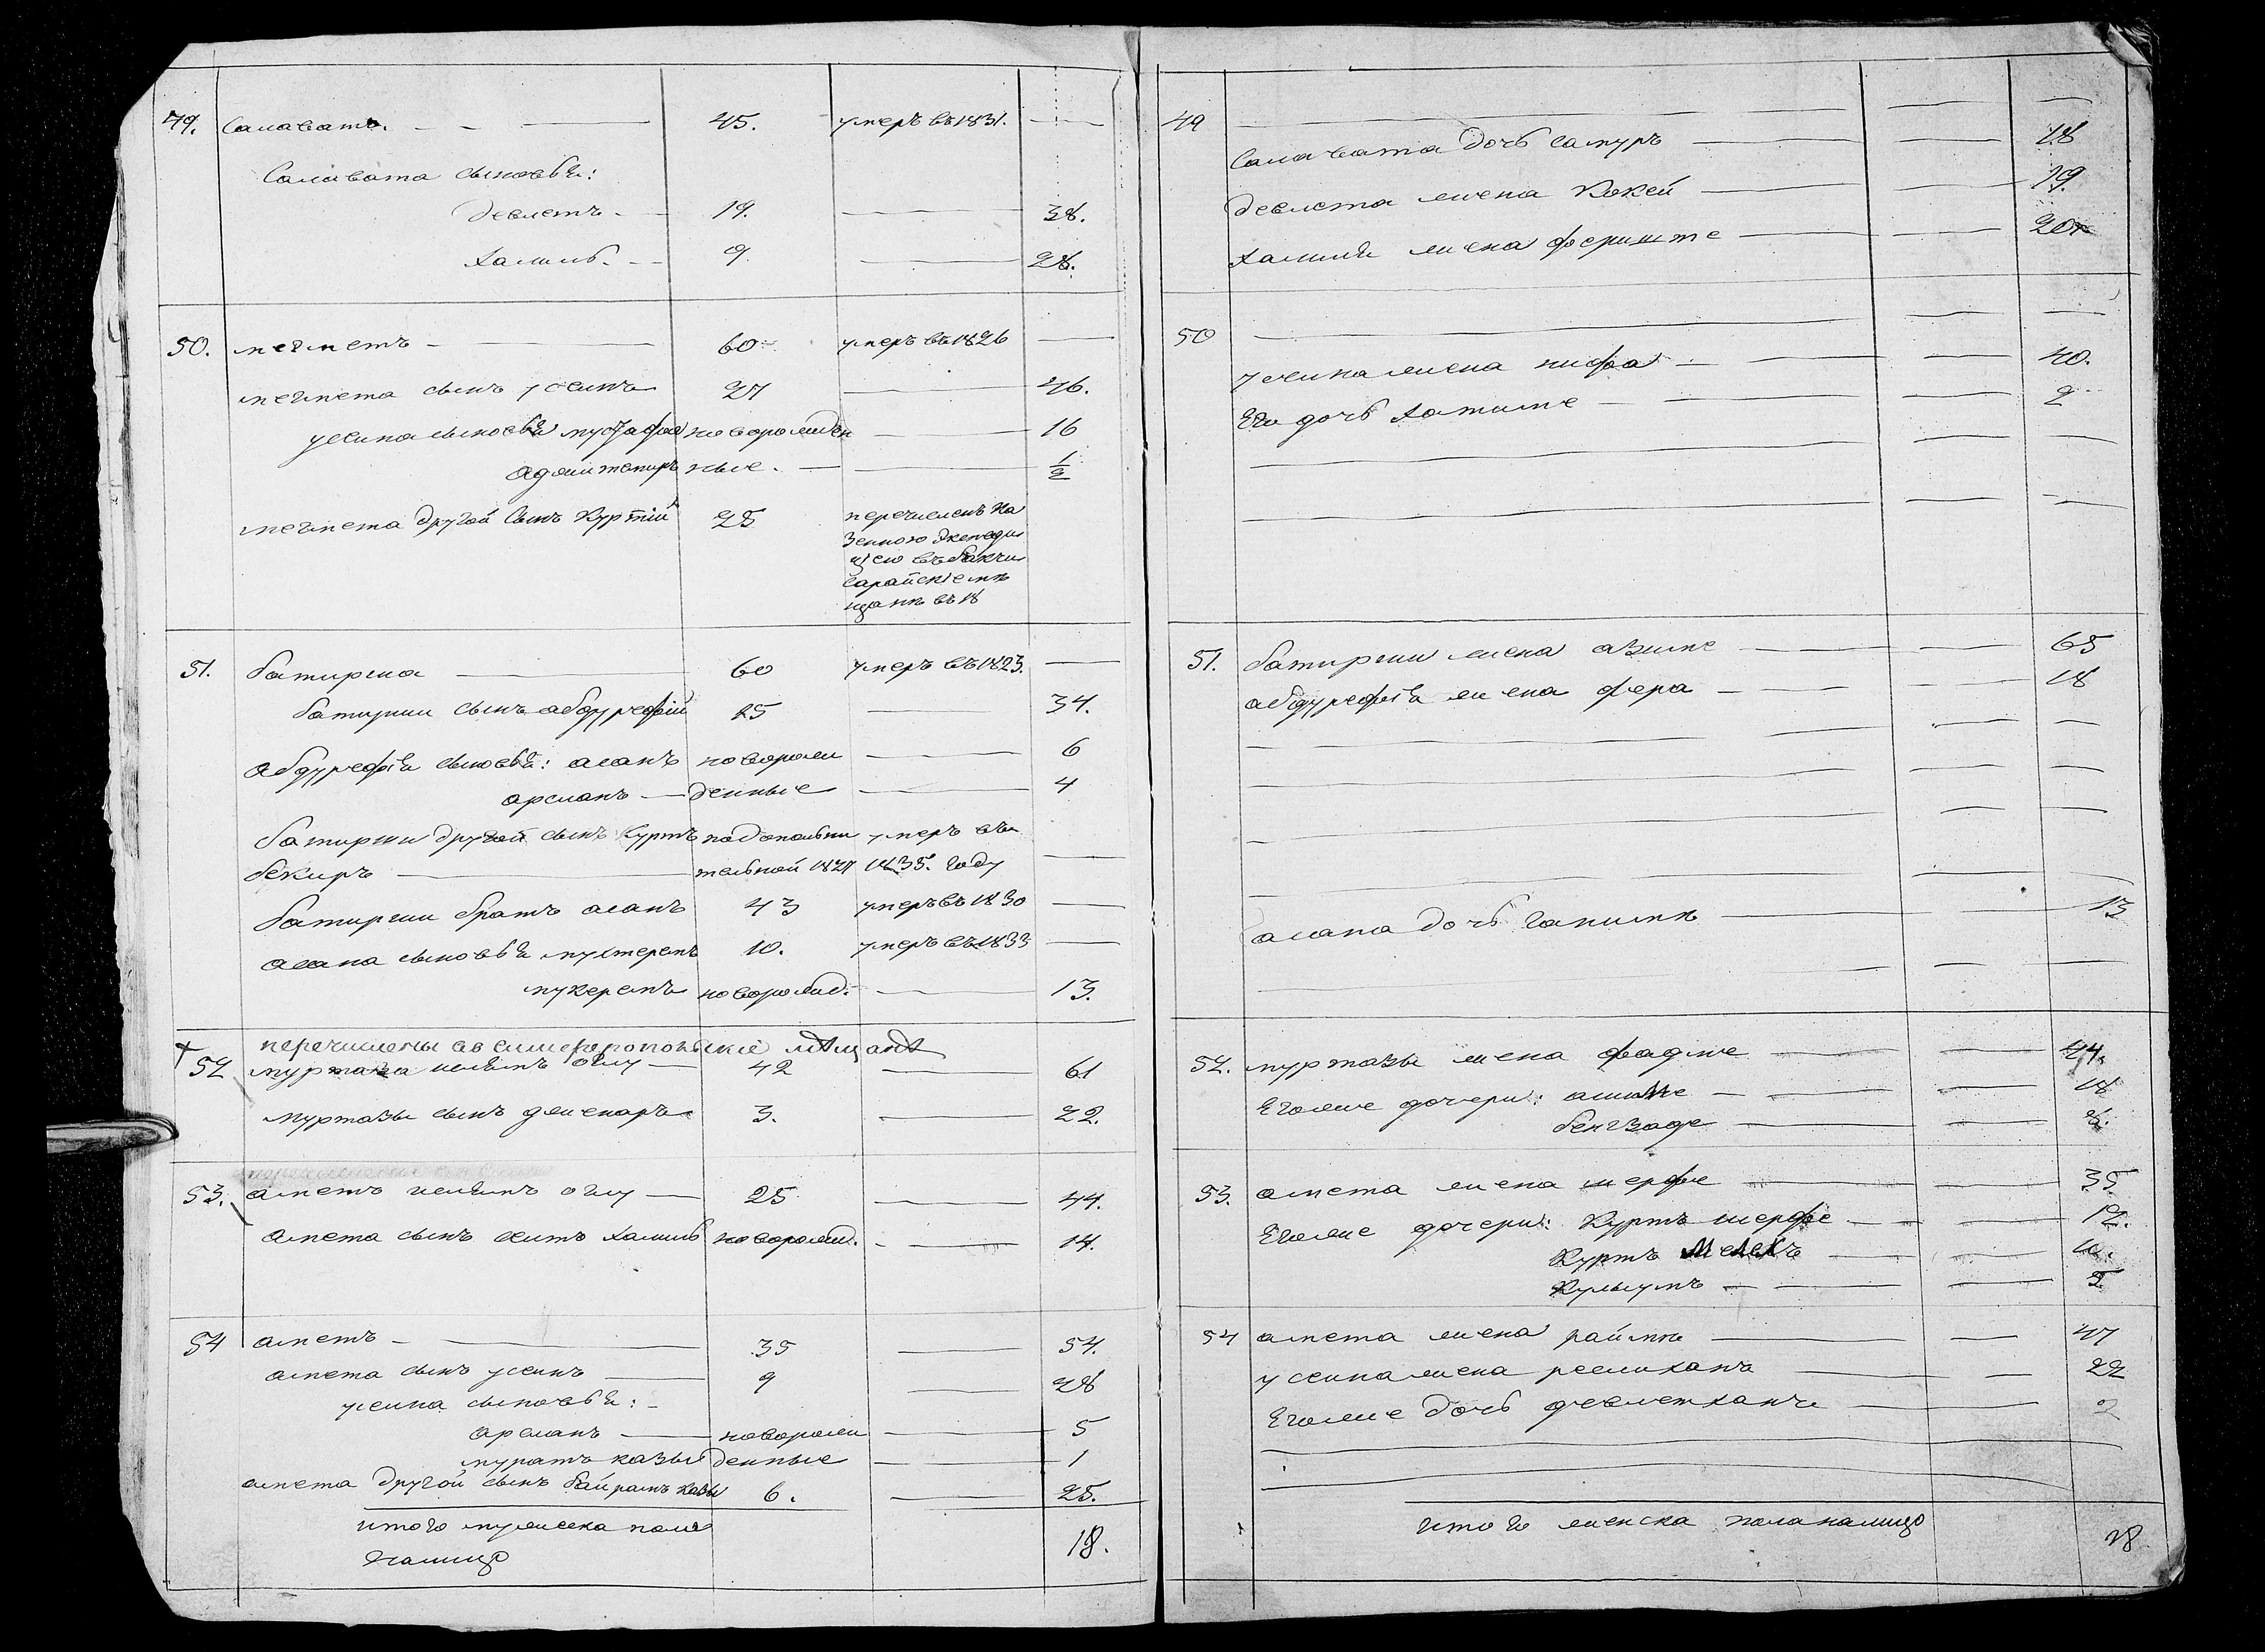 49. Саламатъ. 45. умеръ въ 1831.
Саламата сыновья:
Девлетъ 19. 38.
Халиль 9. 28.
50. меметъ 60 умеръ въ 1826
мемета сынъ усеинъ 27 46.
усеина сыновья мустафа новорожден 16
аджитемиръ ные. 1/2
мемета другой сынъ Куртiй 25 перечисленъ Ка
зенною Экспеди
цiею въ бакчи
сарайскiе мѣ
щане въ 18
51. батирша 60 умеръ въ 1823.
батирши сынъ абдурефiй 15 34.
абдурефiя сыновья: асанъ новорож 6
арсланъ денные 4
батирши другой сынъ Куртъ по дополни умеръ въ
бекиръ тельной 1827 1835. году
батирши братъ асанъ 43 умеръ въ 1830
асана сыновья мухтеремъ 10. умеръ въ 1833
мукеремъ новорожд. 13.
перечислены въ симферопольскiе мѣщанѣ
52 муртаза ислямъ оглу 42 61
муртазы сынъ дженаръ 3. 22.
53. аметъ ислямъ оглу 25 44.
амета сынъ сеитъ халиль новорожд. 14.
54 аметъ 35 54.
амета сынъ усеинъ 9 28
усеина сыновья:
арсланъ новорож 5
муратъ казы денные 1
амета другой сынъ байрамъ казы 6. 25.
итого мужеска пола
налицо 18.
49
Саламата дочь сапуръ 18
девлета жена Кокей 19.
Халиля жена фериште 20
50
усеина жена нифа 40.
Его дочь хатиме 2
51. батирши жена азиме 65
абдурефiя жена фера 18
асана дочь ганиме 13
52. муртазы жена фадме 44.
Его же дочери: алиме 18
бекзаде 8.
53. амета жена шерфе 35
Его же дочери: Куртъ шерфе 12.
Куртъ Мелекъ 10.
Кульсумъ 5
54 амета жена райме 47
усеина жена реслиханъ 22
Его же дочь девлетханъ 2
итого женска пола налицо 18